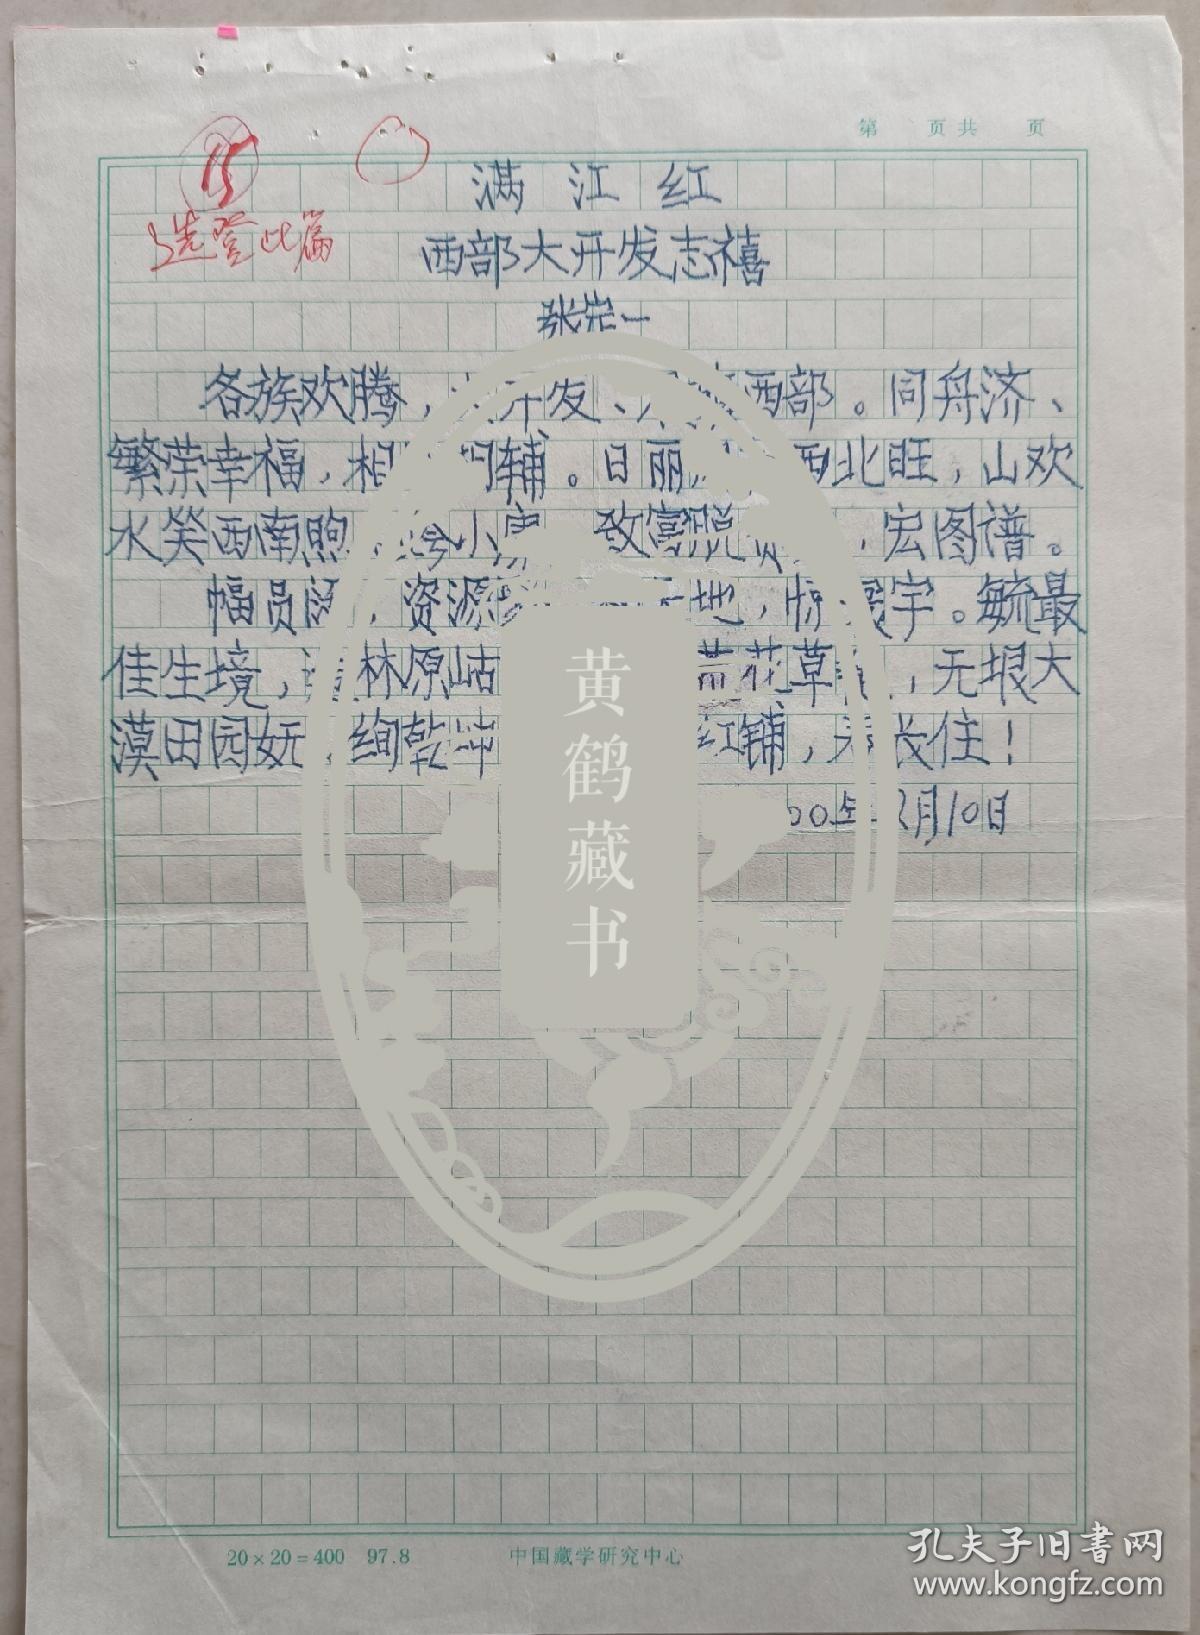 第 页共 页
15
选登此篇
满江红
西部大开发志禧
张崇一
各族欢腾，开发、西部。同舟济、
繁荣幸福，相辅。日丽西北旺，山欢
水笑西南煦小康致富脱，宏图谱。
幅员阔，资源惊寰宇。毓最
佳生境，林原岵花草，无垠大
漠田园妩，绚乾坤红铺，春长住！
00年2月10日
黄鹤藏书
20×20=400 97.8 中国藏学研究中心
孔夫子旧书网
www.kongfz.com